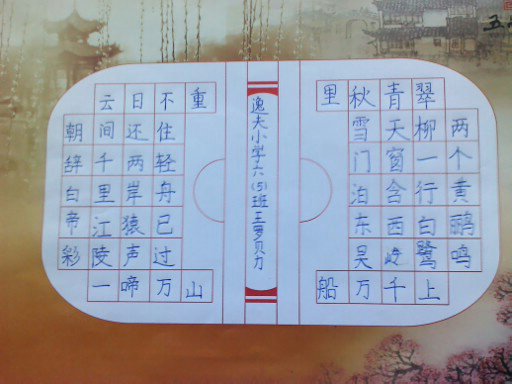 两个黄鹂鸣
翠柳一行白鹭上
青天窗含西岭千
秋雪门泊东吴万
里船
逸夫小学六(5)班王罗贝力
朝辞白帝彩
云间千里江陵一
日还两岸猿声啼
不住轻舟已过万
重山